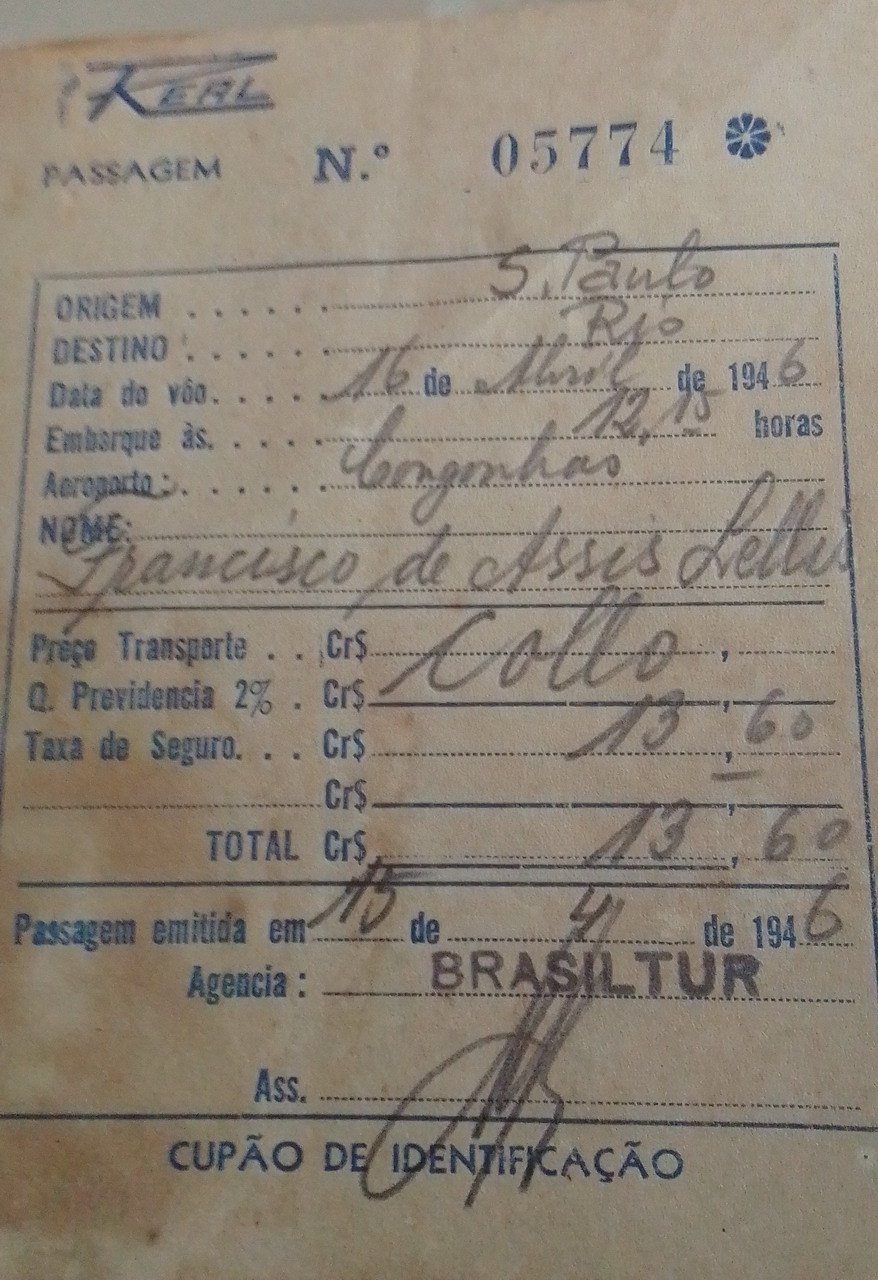 REAL
PASSAGEM N.º 05774
ORIGEM . . . . . . S. Paulo
DESTINO . . . . . Rio
Data do vôo. . . . . 16 de Abril de 1946
Embarque às. . . . . 12,15 horas
Aeroporto: . . . . . . Congonhas
NOME:
Francisco de Assis Lellis
Preço Transporte . . Cr$ Collo ,
Q. Previdencia 2% . Cr$ ,
Taxa de Seguro. . . Cr$ 13,60
Cr$ ,
TOTAL Cr$ 13,60
Passagem emitida em 15 de 4 de 1946
Agencia: BRASILTUR
Ass.
CUPÃO DE IDENTIFICAÇÃO